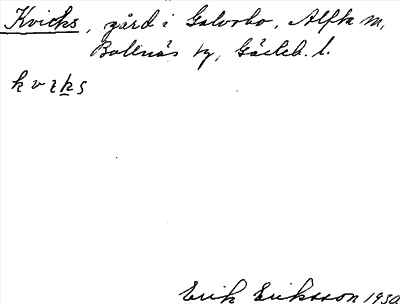 Kvicks, gård i Galvsbo, Alfta sn,
Bollnäs tg, Gävleb. l.
kviks
Erik Eriksson 1930